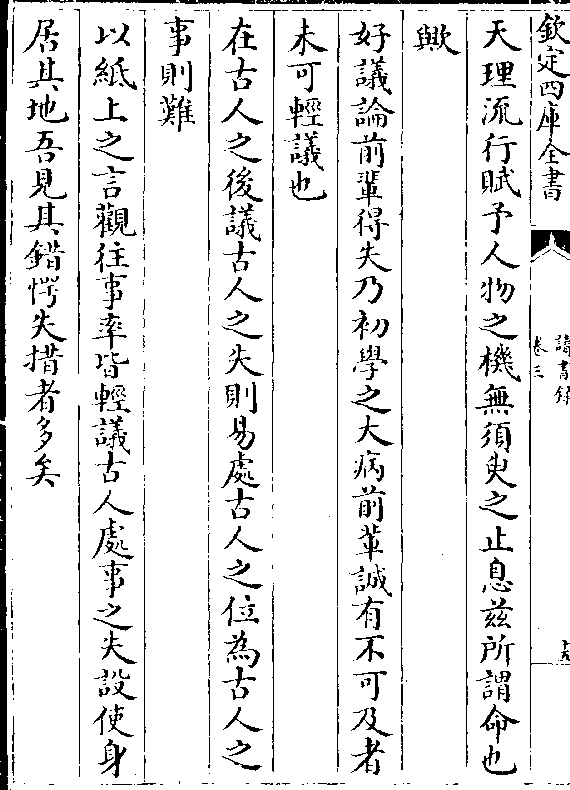 欽定四庫全書
讀書錄
卷三
天理流行賦予人物之機無須臾之止息兹所謂命也
歟
好議論前輩得失乃初學之大病前輩誠有不可及者
未可輕議也
在古人之後議古人之失則易處古人之位為古人之
事則難
以紙上之言觀往事率皆輕議古人處事之失設使身
居其地吾見其錯愕失措者多矣